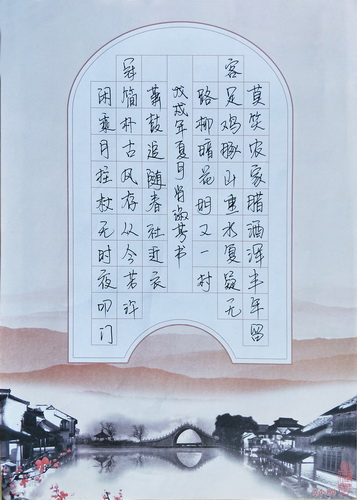 莫笑农家腊酒浑丰年留
客足鸡豚山重水复疑无
路柳暗花明又一村
戊戌年夏月肖淑书
箫鼓追随春社近衣
冠简朴古风存从今若许
闲乘月拄杖无时夜叩门